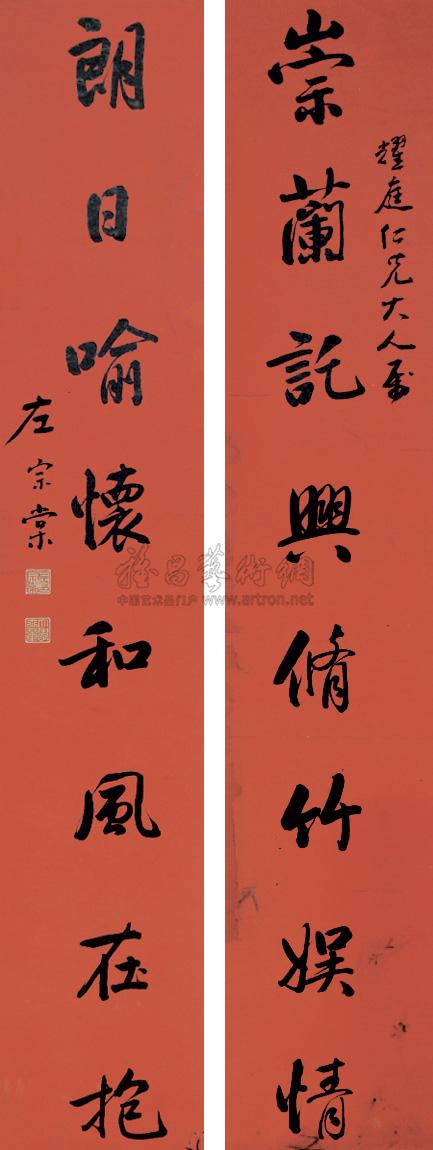 耀庭仁兄大人属
崇蘭託興脩竹娱情
朗日喻懷和風在抱
左宗棠
雅昌藝術網
中国艺术品门户 www.artron.net